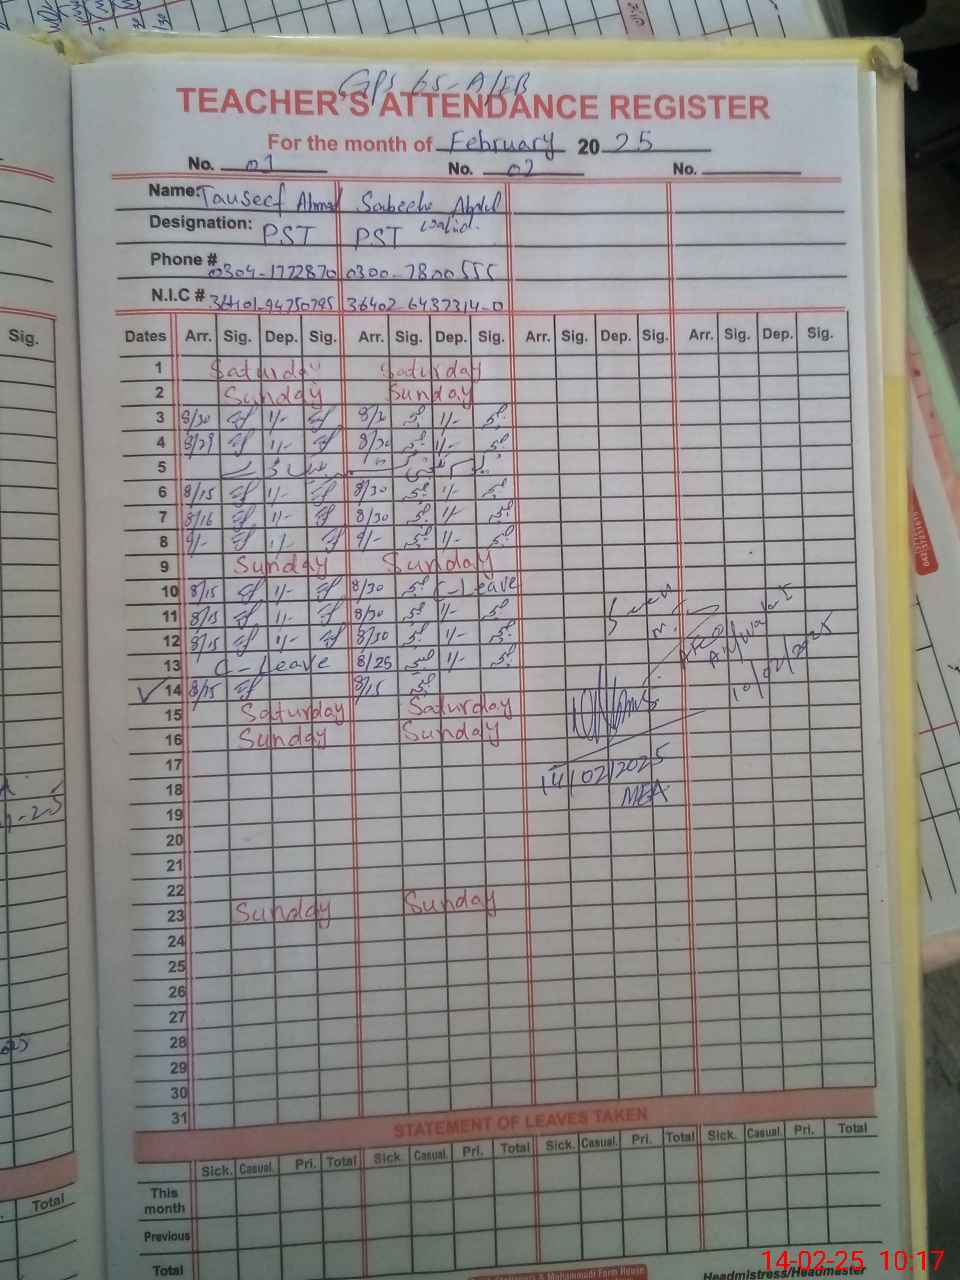 GPS 65-A/EB
TEACHER'S ATTENDANCE REGISTER
For the month of February 20 25
No. 01 No. 02 No.
Name: Tauseef Ahmad Sabeeha Abdul Walid.
Designation: PST PST
Phone # 0304-1772870 0300-7800555
N.I.C # 36402-6437314-0
Sig.
Dates Arr. Sig. Dep. Sig. Arr. Sig. Dep. Sig. Arr. Sig. Dep. Sig. Arr. Sig. Dep. Sig.
1 Saturday Saturday
2 Sunday Sunday
3 8/30 1/- 1/-
4 8/29 1/- 1/-
5
6 8/15 1/- 8/30 1/-
7 8/16 1/- 8/30 1/-
8 9/- 1/- 9/- 1/-
9 Sunday Sunday
10 8/15 1/- 8/30 C-Leave
11 8/15 1/- 8/30 1/-
12 8/15 1/- 8/30 1/-
13 C-Leave 8/25 1/-
14 8/15 8/15
15 Saturday Saturday
16 Sunday Sunday
17
18
19
20
21
22
23 Sunday Sunday
24
25
26
27
28
29
30
31
10/02/2025
14/02/2025
MEA
STATEMENT OF LEAVES TAKEN
Sick. Casual. Pri. Total Sick. Casual. Pri. Total Sick. Casual. Pri. Total Sick. Casual. Pri. Total
This month
Previous
Total
Total
Headmistress/Headmaster
14-02-25 10:17